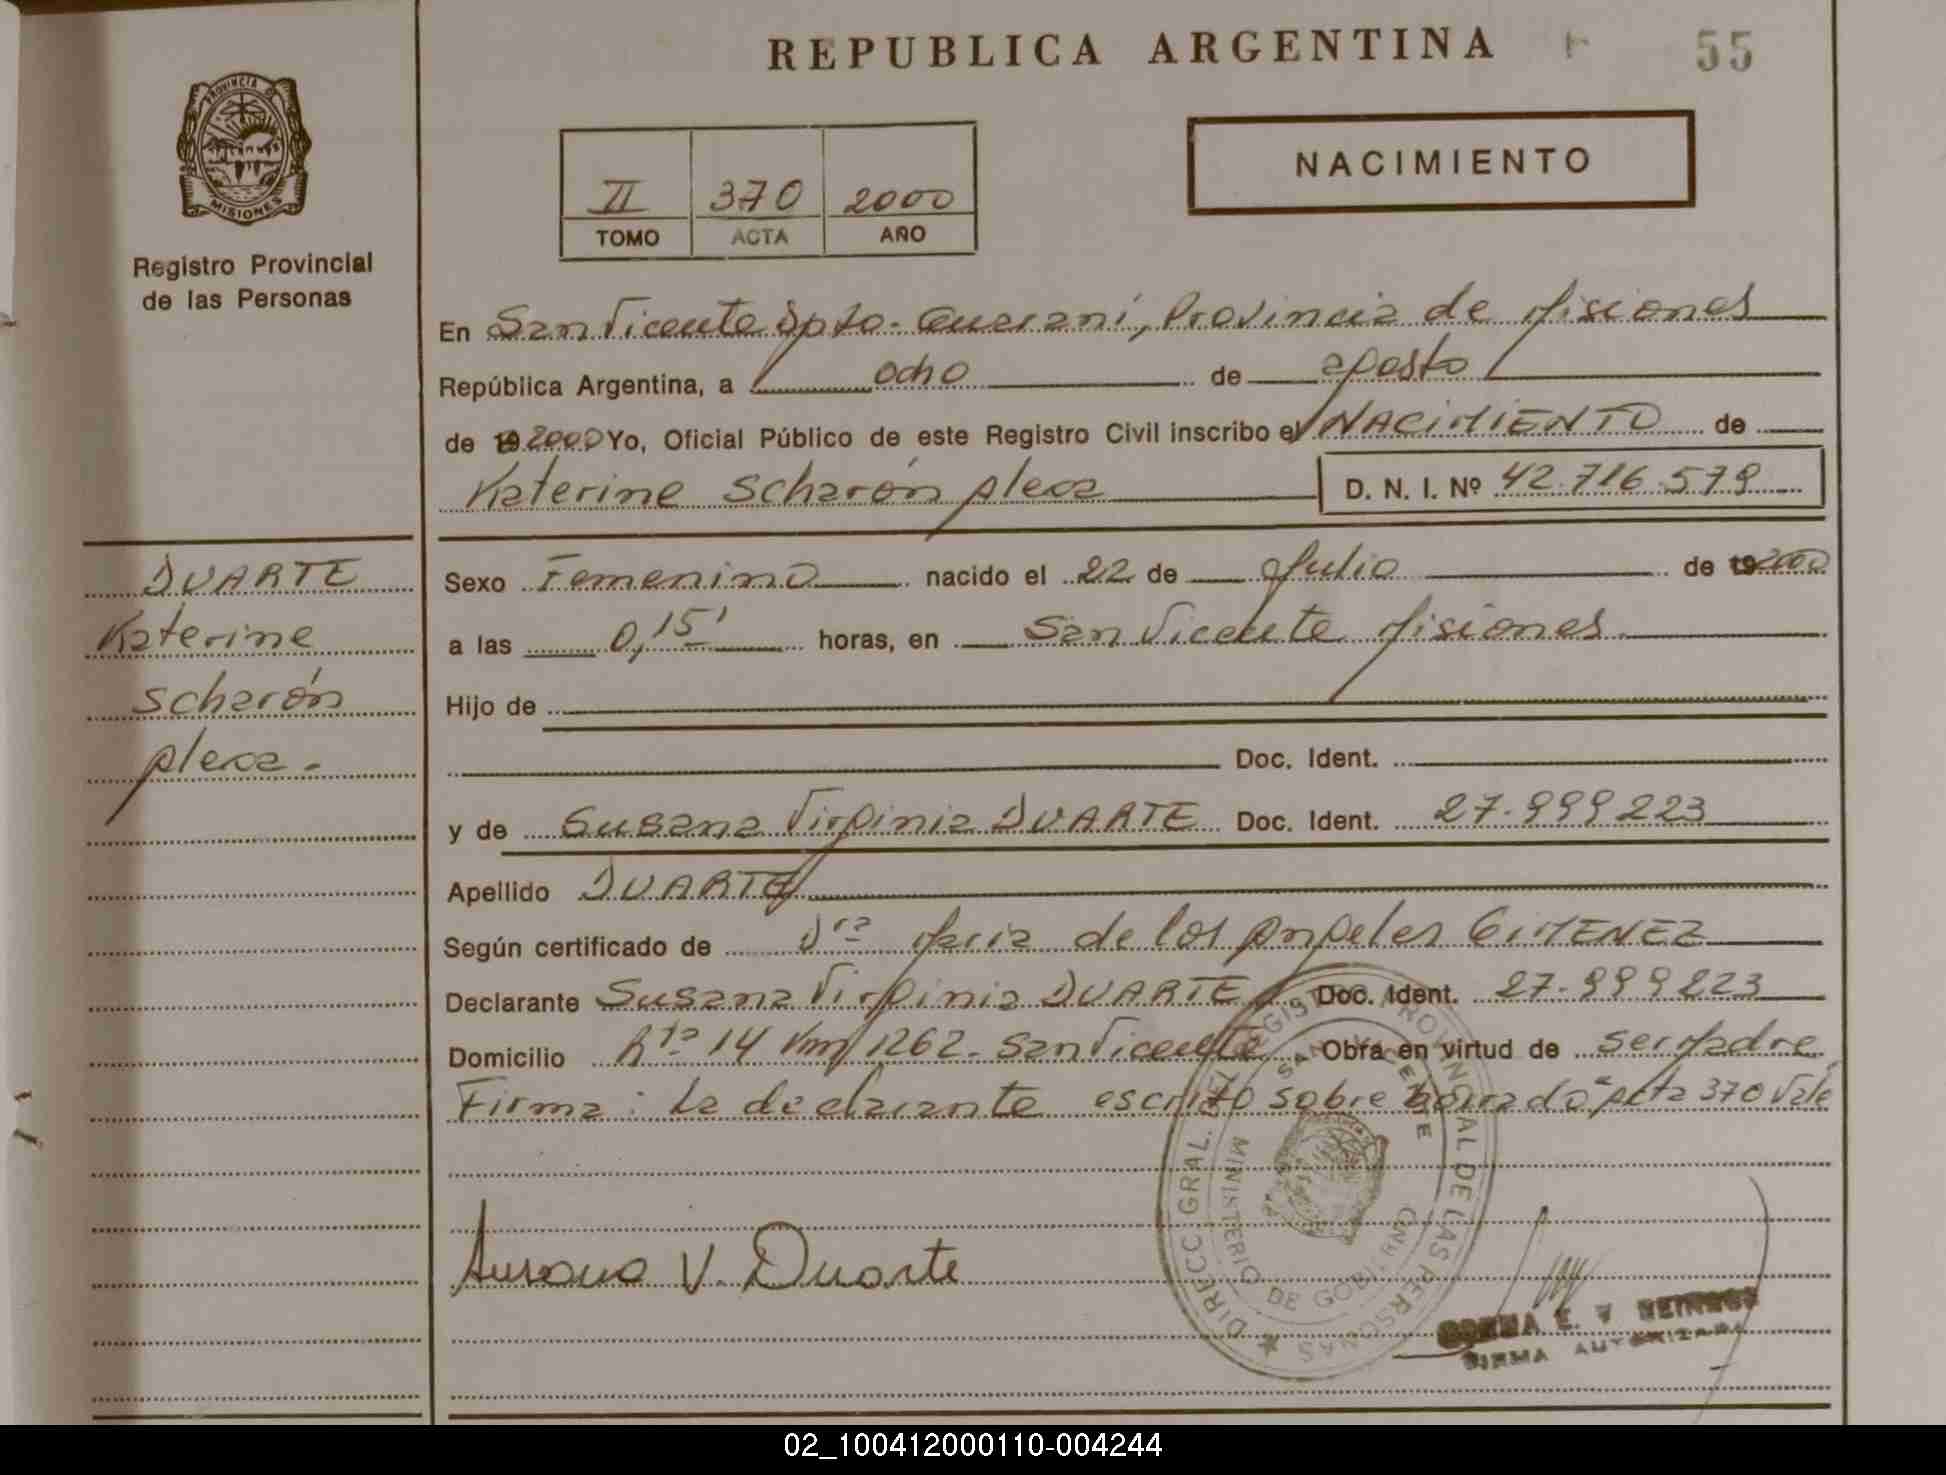 REPUBLICA ARGENTINA
55
PROVINCIA D
MISIONES
Registro Provincial
de las Personas
II 370 2000
TOMO ACTA AÑO
NACIMIENTO
En San Vicente Dpto. Guaraní, Provincia de Misiones
República Argentina, a ocho de agosto
de 19 2000 Yo, Oficial Público de este Registro Civil inscribo el NACIMIENTO de
Katerine Scharón Alexa D. N. I. Nº 42.716.579
DUARTE
Katerine
Scharón
Alexa.
Sexo Femenino nacido el 22 de Julio de 19 2000
a las 0,15' horas, en San Vicente Misiones
Hijo de
Doc. Ident.
y de Susana Virginia DUARTE Doc. Ident. 27.999.223
Apellido DUARTE
Según certificado de Dra Maria de los Angeles GIMENEZ
Declarante Susana Virginia DUARTE Doc. Ident. 27.999.223
Domicilio Rta 14 Km 1262. San Vicente Obra en virtud de ser Madre
Firma: La declarante escrito sobre borrado "Acta 370 Vale
Susana V. Duarte
DIRECC GRAL. DEL REGISTRO PROVINCIAL DE LAS PERSONAS
SAN VICENTE
MINISTERIO DE GOBIERNO
FIRMA AUTORIZADA
02_100412000110-004244